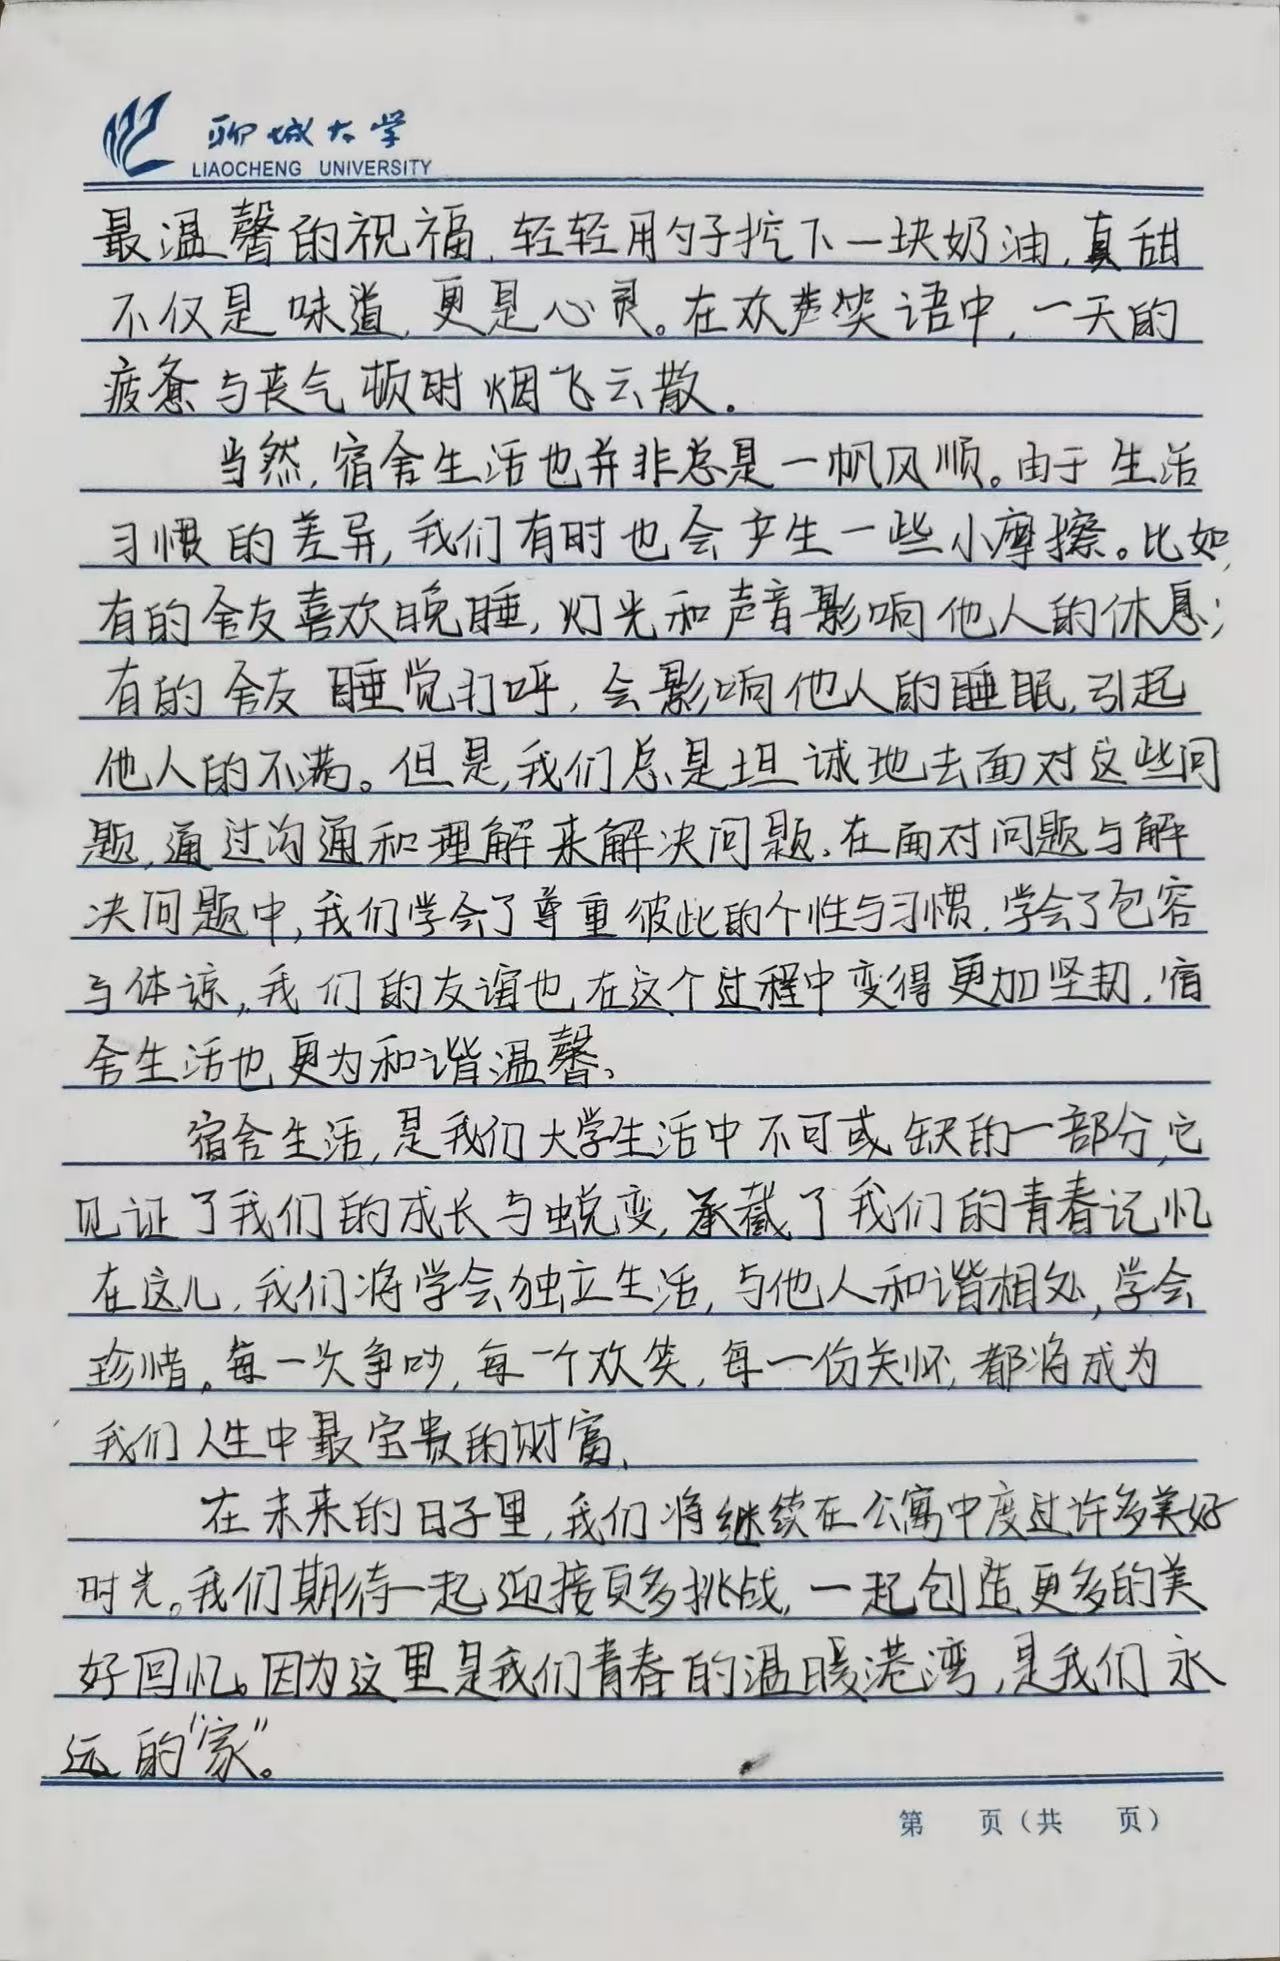 聊城大学
LIAOCHENG UNIVERSITY
最温馨的祝福,轻轻用勺子挖下一块奶油,真甜
不仅是味道,更是心灵。在欢声笑语中,一天的
疲惫与丧气顿时烟飞云散.
当然,宿舍生活也并非总是一帆风顺。由于生活
习惯的差异,我们有时也会产生一些小摩擦。比如,
有的舍友喜欢晚睡,灯光和声音影响他人的休息;
有的舍友睡觉打呼,会影响他人的睡眠,引起
他人的不满。但是,我们总是坦诚地去面对这些问
题,通过沟通和理解来解决问题。在面对问题与解
决问题中,我们学会了尊重彼此的个性与习惯,学会了包容
与体谅,我们的友谊也在这个过程中变得更加坚韧,宿
舍生活也更为和谐温馨。
宿舍生活,是我们大学生活中不可或缺的一部分,它
见证了我们的成长与蜕变,承载了我们的青春记忆
在这儿,我们将学会独立生活,与他人和谐相处,学会
珍惜。每一次争吵,每一个欢笑,每一份关怀,都将成为
我们人生中最宝贵的财富.
在未来的日子里,我们将继续在公寓中度过许多美好
时光。我们期待一起迎接更多挑战,一起创造更多的美
好回忆。因为这里是我们青春的温暖港湾,是我们永
远的"家"。
第 页(共 页)